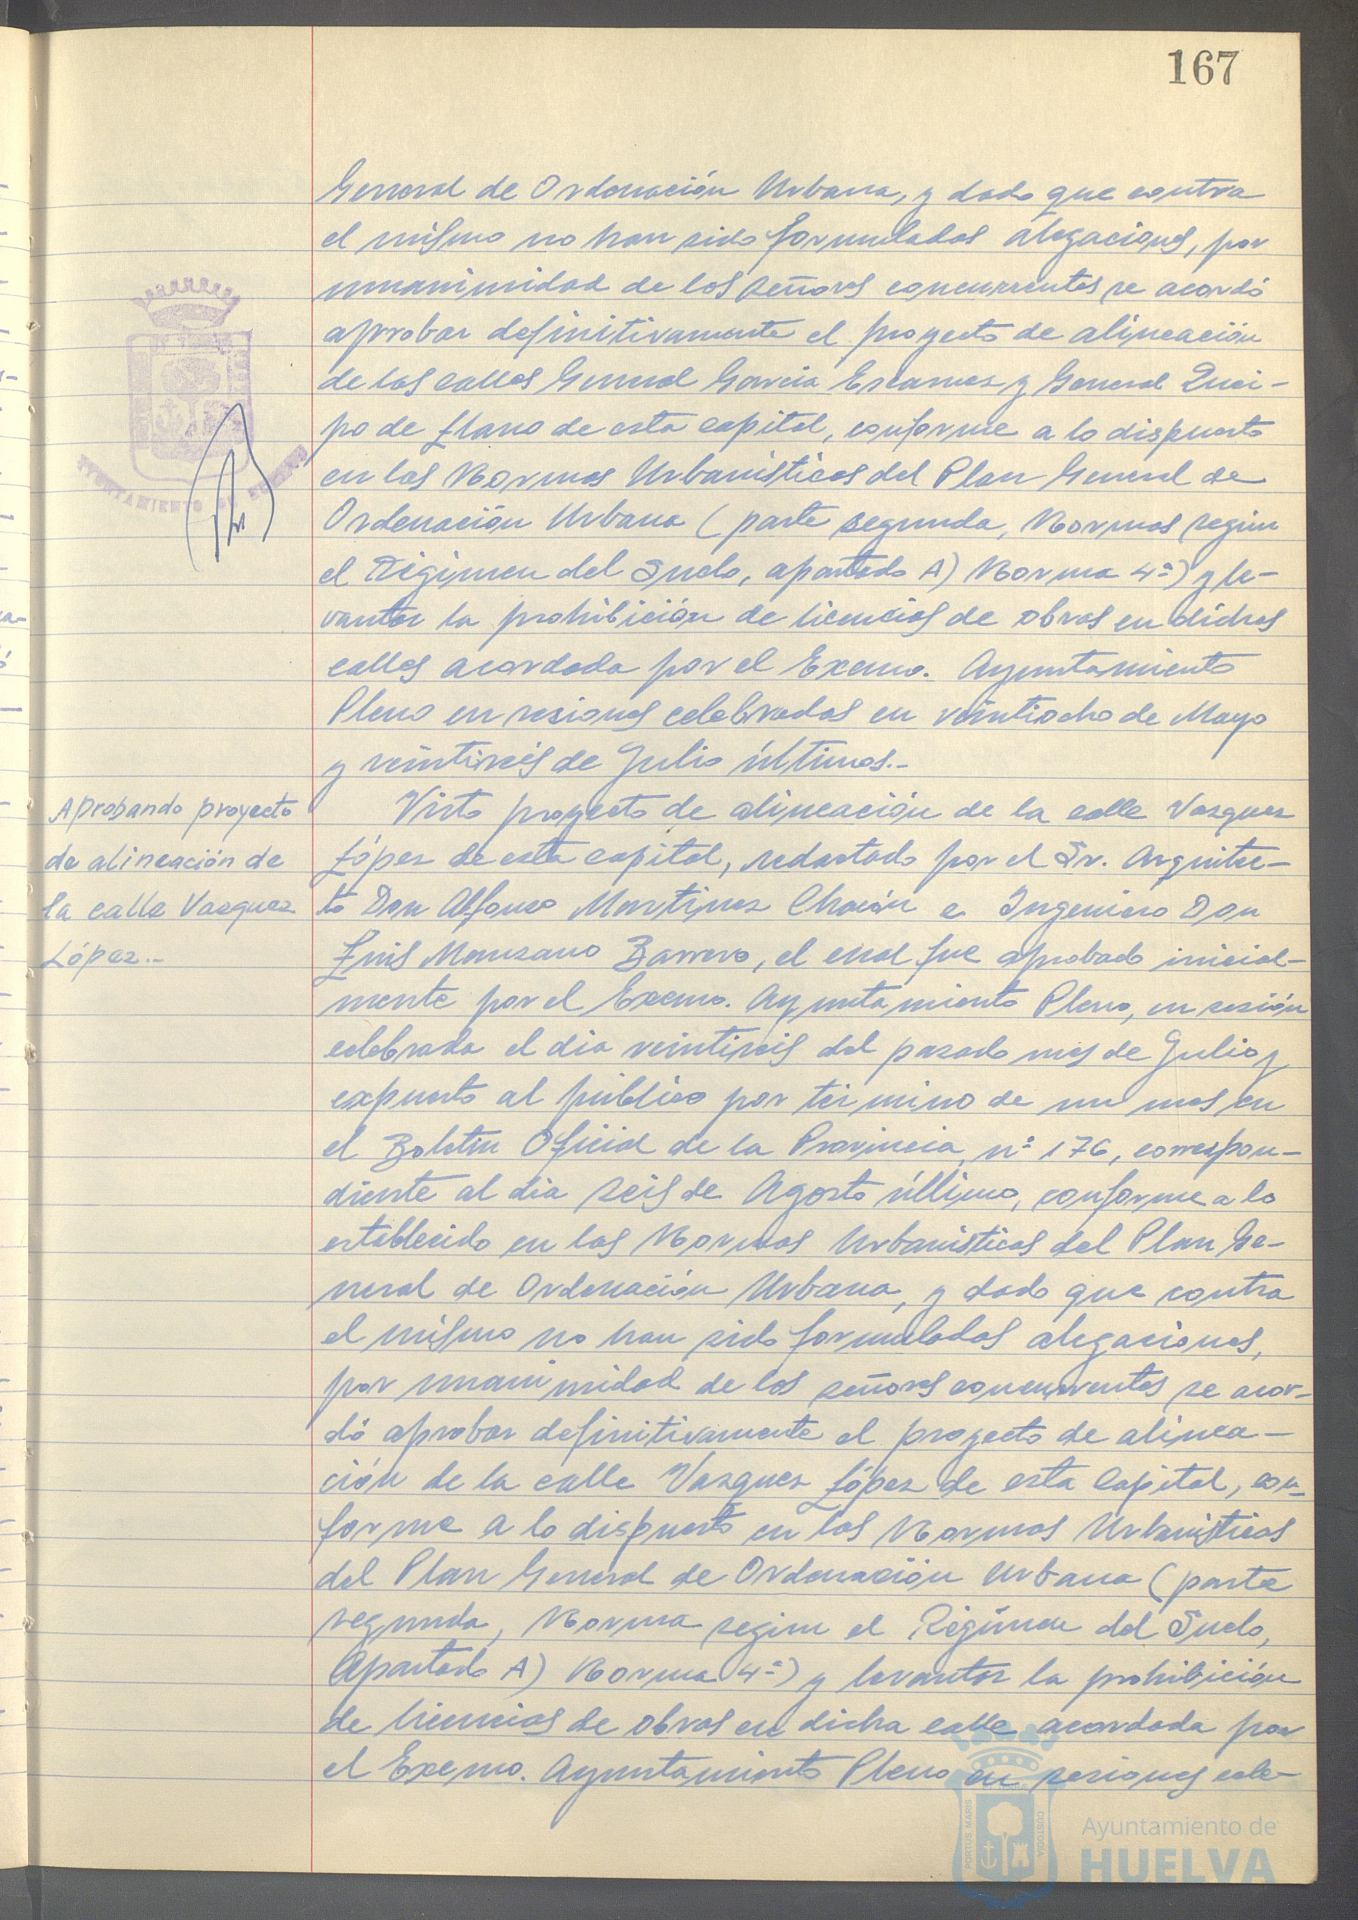 167
General de Ordenación Urbana, y dado que contra
el mismo no han sido formuladas alegaciones, por
unanimidad de los señores concurrentes se acordó
aprobar definitivamente el proyecto de alineación
de las calles General García Escamez y General Quei-
po de Llano de esta capital, conforme a lo dispuesto
en las Normas Urbanísticas del Plan General de
Ordenación Urbana (parte segunda, Normas según
el Régimen del Suelo, apartado A) Norma 4ª) y le-
vantar la prohibición de licencias de obras en dichas
calles acordada por el Excmo. Ayuntamiento
Pleno en sesiones celebradas en veintiocho de Mayo
y veintiseis de Julio últimos.-
Aprobando proyecto
de alineación de
la calle Vazquez
López.-
Visto proyecto de alineación de la calle Vazquez
López de esta capital, redactado por el Sr. Arquitec-
to Don Alfonso Martinez Chacón e Ingeniero Don
Luis Manzano Barrero, el cual fue aprobado inicial-
mente por el Excmo. Ayuntamiento Pleno, en sesión
celebrada el dia veintiseis del pasado mes de Julio y
expuesto al público por término de un mes en
el Boletin Oficial de la Provincia, nº 176, correspon-
diente al dia seis de Agosto último, conforme a lo
establecido en las Normas Urbanísticas del Plan Ge-
neral de Ordenación Urbana, y dado que contra
el mismo no han sido formuladas alegaciones,
por unanimidad de los señores concurrentes se acor-
dó aprobar definitivamente el proyecto de alinea-
ción de la calle Vazquez López de esta Capital, con-
forme a lo dispuesto en las Normas Urbanísticas
del Plan General de Ordenación Urbana (parte
segunda, Norma según el Régimen del Suelo,
Apartado A) Norma 4ª) y levantar la prohibición
de licencias de obras en dicha calle acordada por
el Excmo. Ayuntamiento Pleno en sesiones cele-
PORTUS MARIS
CUSTODIA
Ayuntamiento de
HUELVA